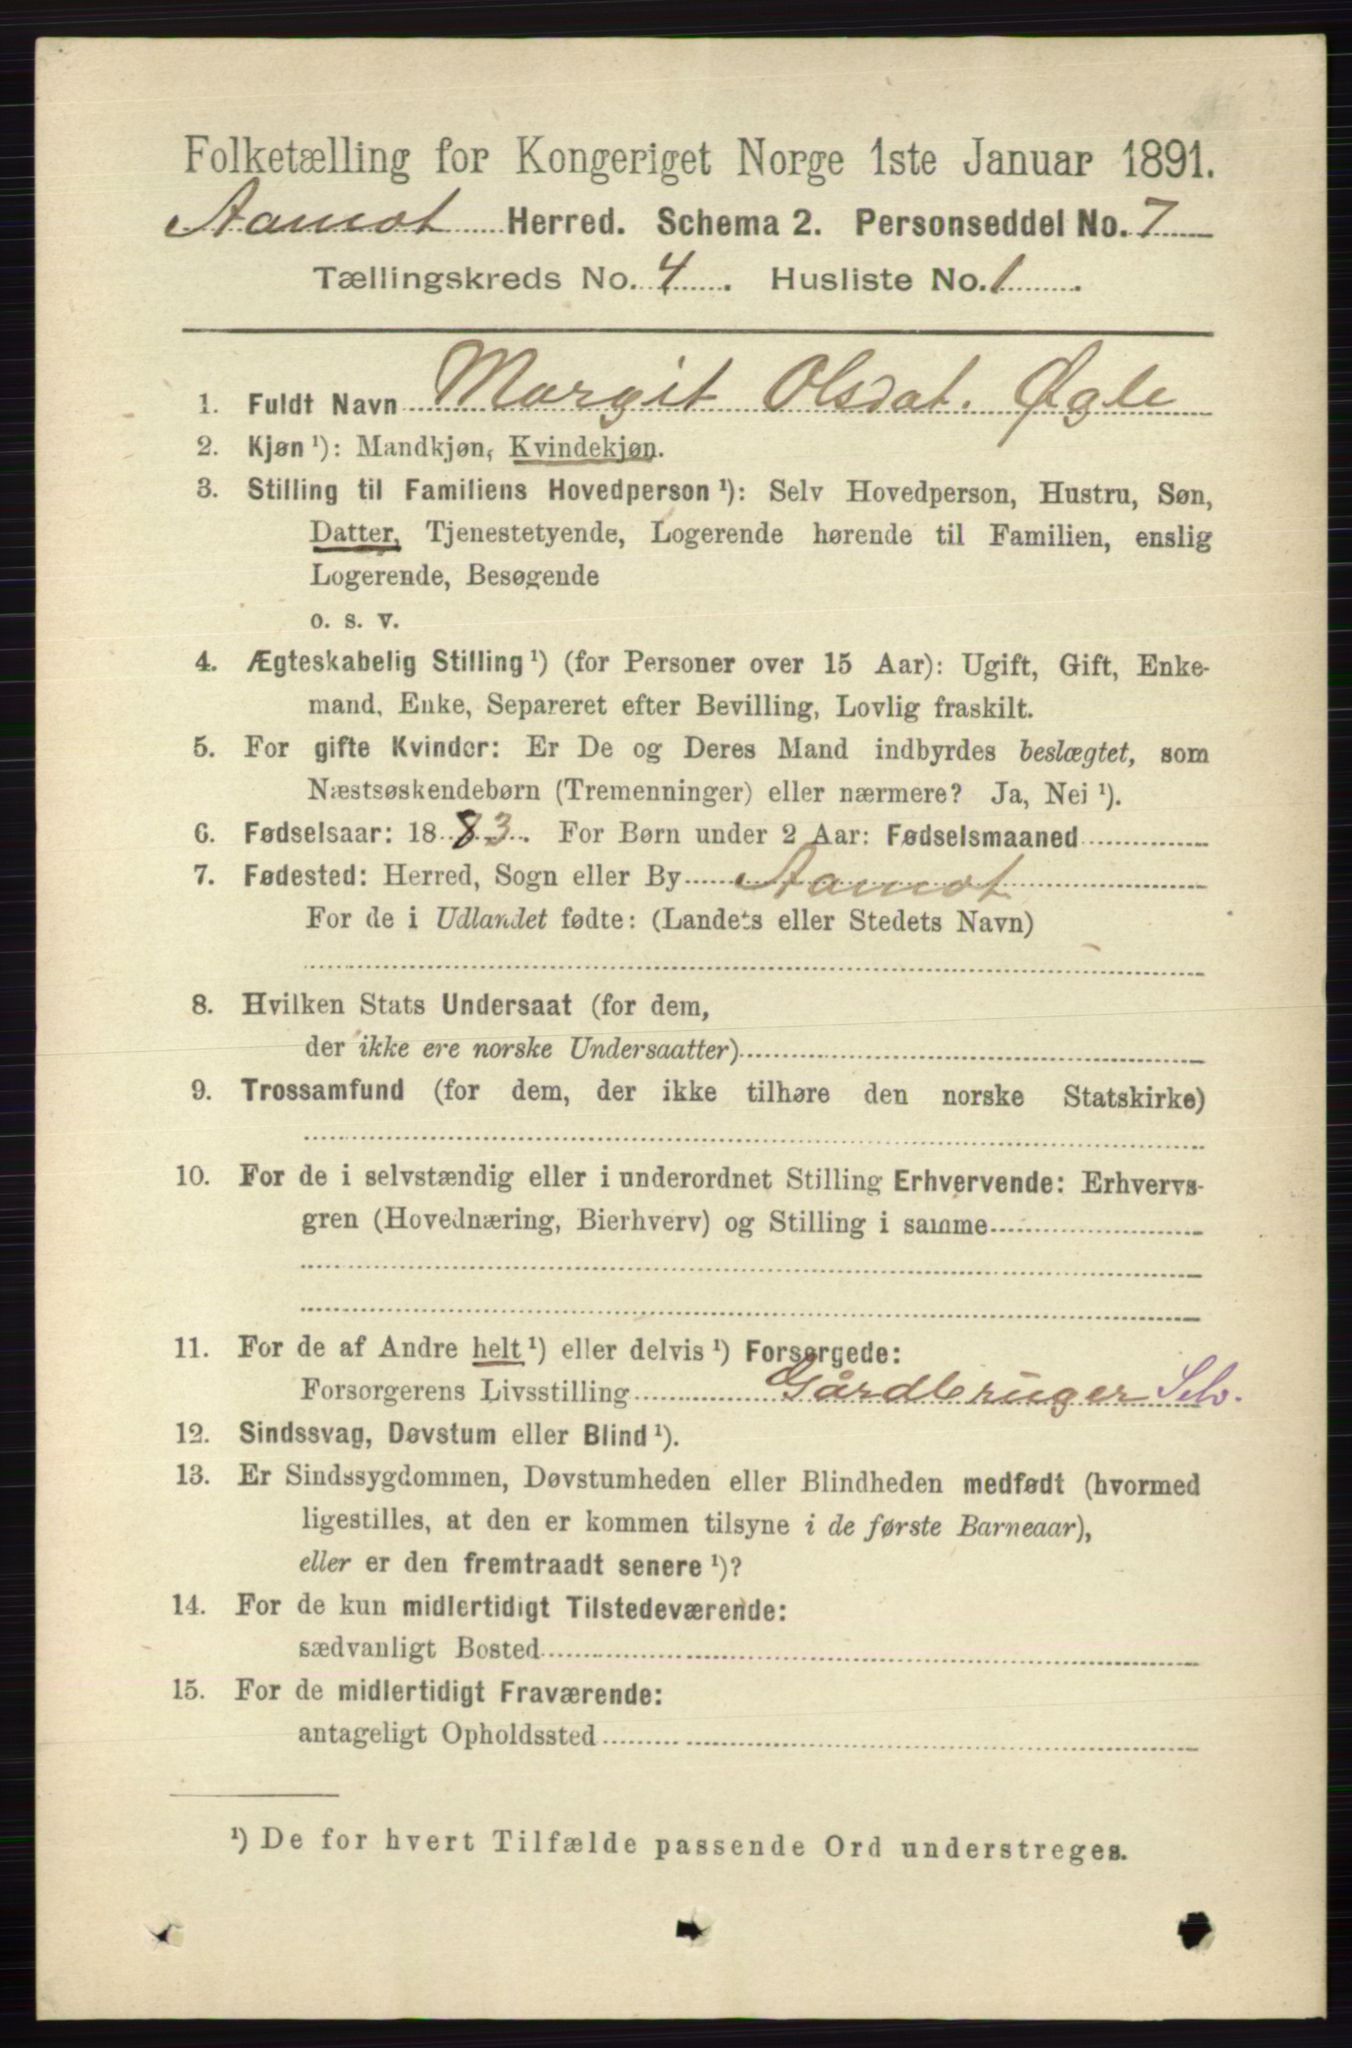 Folketælling for Kongeriget Norge 1ste Januar 1891.
Aamot Herred. Schema 2. Personseddel No. 7
Tællingskreds No. 4. Husliste No. 1.
1. Fuldt Navn Margit Olsdat. Øgle
2. Kjøn¹): Mandkjøn, Kvindekjøn.
3. Stilling til Familiens Hovedperson¹): Selv Hovedperson, Hustru, Søn,
Datter, Tjenestetyende, Logerende hørende til Familien, enslig
Logerende, Besøgende
o. s. v.
4. Ægteskabelig Stilling¹) (for Personer over 15 Aar): Ugift, Gift, Enke-
mand, Enke, Separeret efter Bevilling, Lovlig fraskilt.
5. For gifte Kvinder: Er De og Deres Mand indbyrdes beslægtet, som
Næstsøskendebørn (Tremenninger) eller nærmere? Ja, Nei¹).
6. Fødselsaar: 1883. For Børn under 2 Aar: Fødselsmaaned
7. Fødested: Herred, Sogn eller By Aamot
For de i Udlandet fødte: (Landets eller Stedets Navn)
8. Hvilken Stats Undersaat (for dem,
der ikke ere norske Undersaatter)
9. Trossamfund (for dem, der ikke tilhøre den norske Statskirke)
10. For de i selvstændig eller i underordnet Stilling Erhvervende: Erhvervs-
gren (Hovednæring, Bierhverv) og Stilling i samme
11. For de af Andre helt¹) eller delvis¹) Forsørgede:
Forsørgerens Livsstilling Gårdbruger Selv.
12. Sindssvag, Døvstum eller Blind¹).
13. Er Sindssygdommen, Døvstumheden eller Blindheden medfødt (hvormed
ligestilles, at den er kommen tilsyne i de første Barneaar),
eller er den fremtraadt senere¹)?
14. For de kun midlertidigt Tilstedeværende:
sædvanligt Bosted
15. For de midlertidigt Fraværende:
antageligt Opholdssted
¹) De for hvert Tilfælde passende Ord understreges.